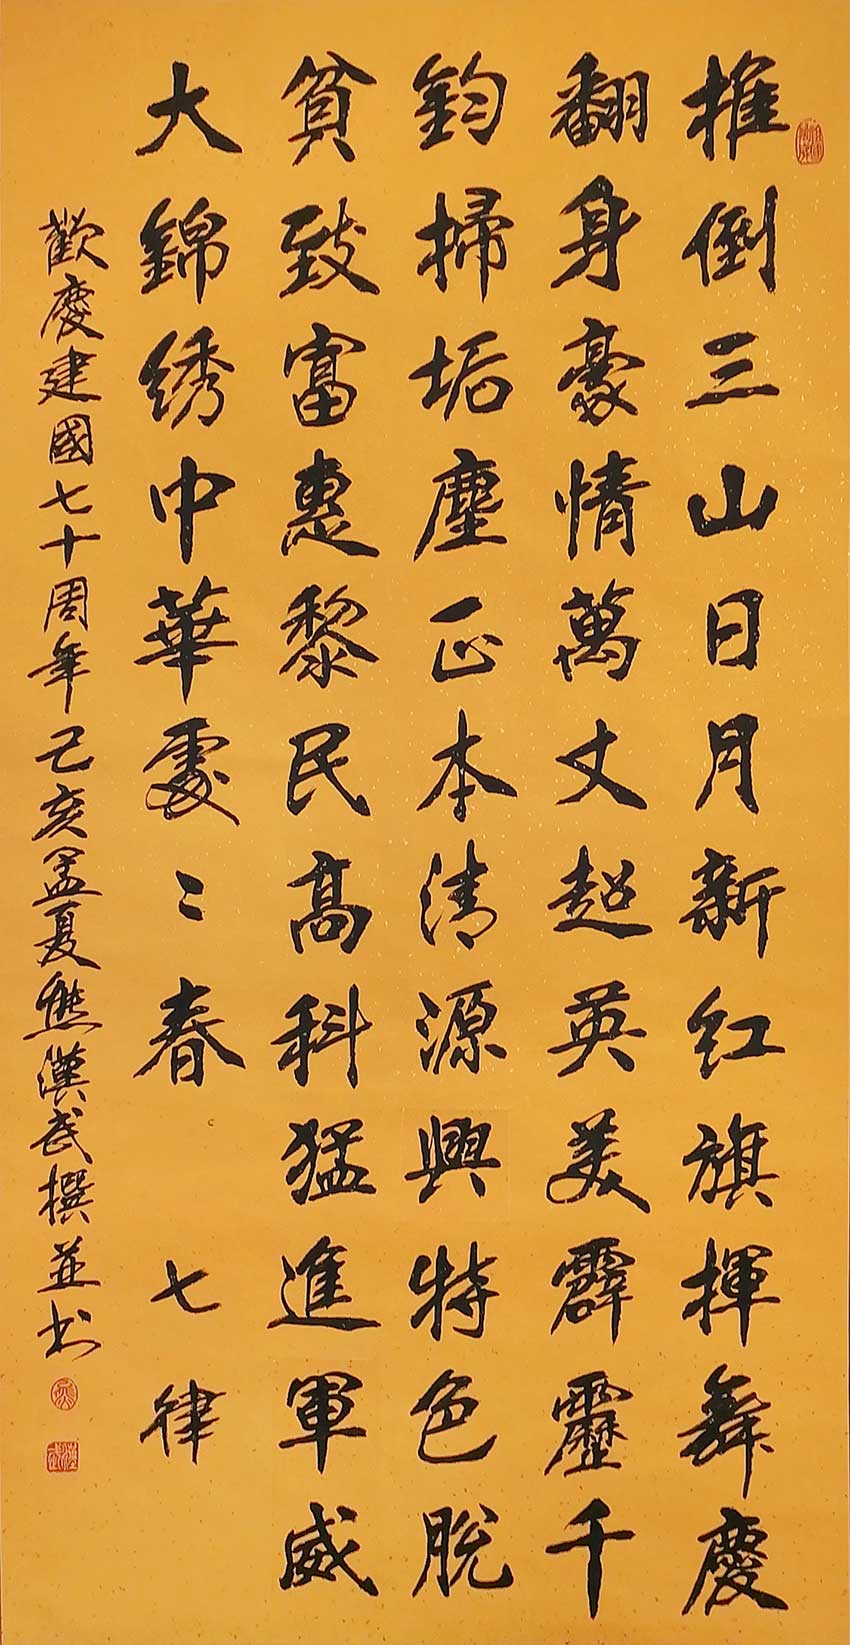 推倒三山日月新红旗揮舞慶
翻身豪情萬丈超英美霹靂千
鈞掃垢塵正本清源興特色脱
貧致富惠黎民高科猛進軍威
大錦绣中華處〻春 七律
歡慶建國七十周年己亥孟夏熊漢武撰並书